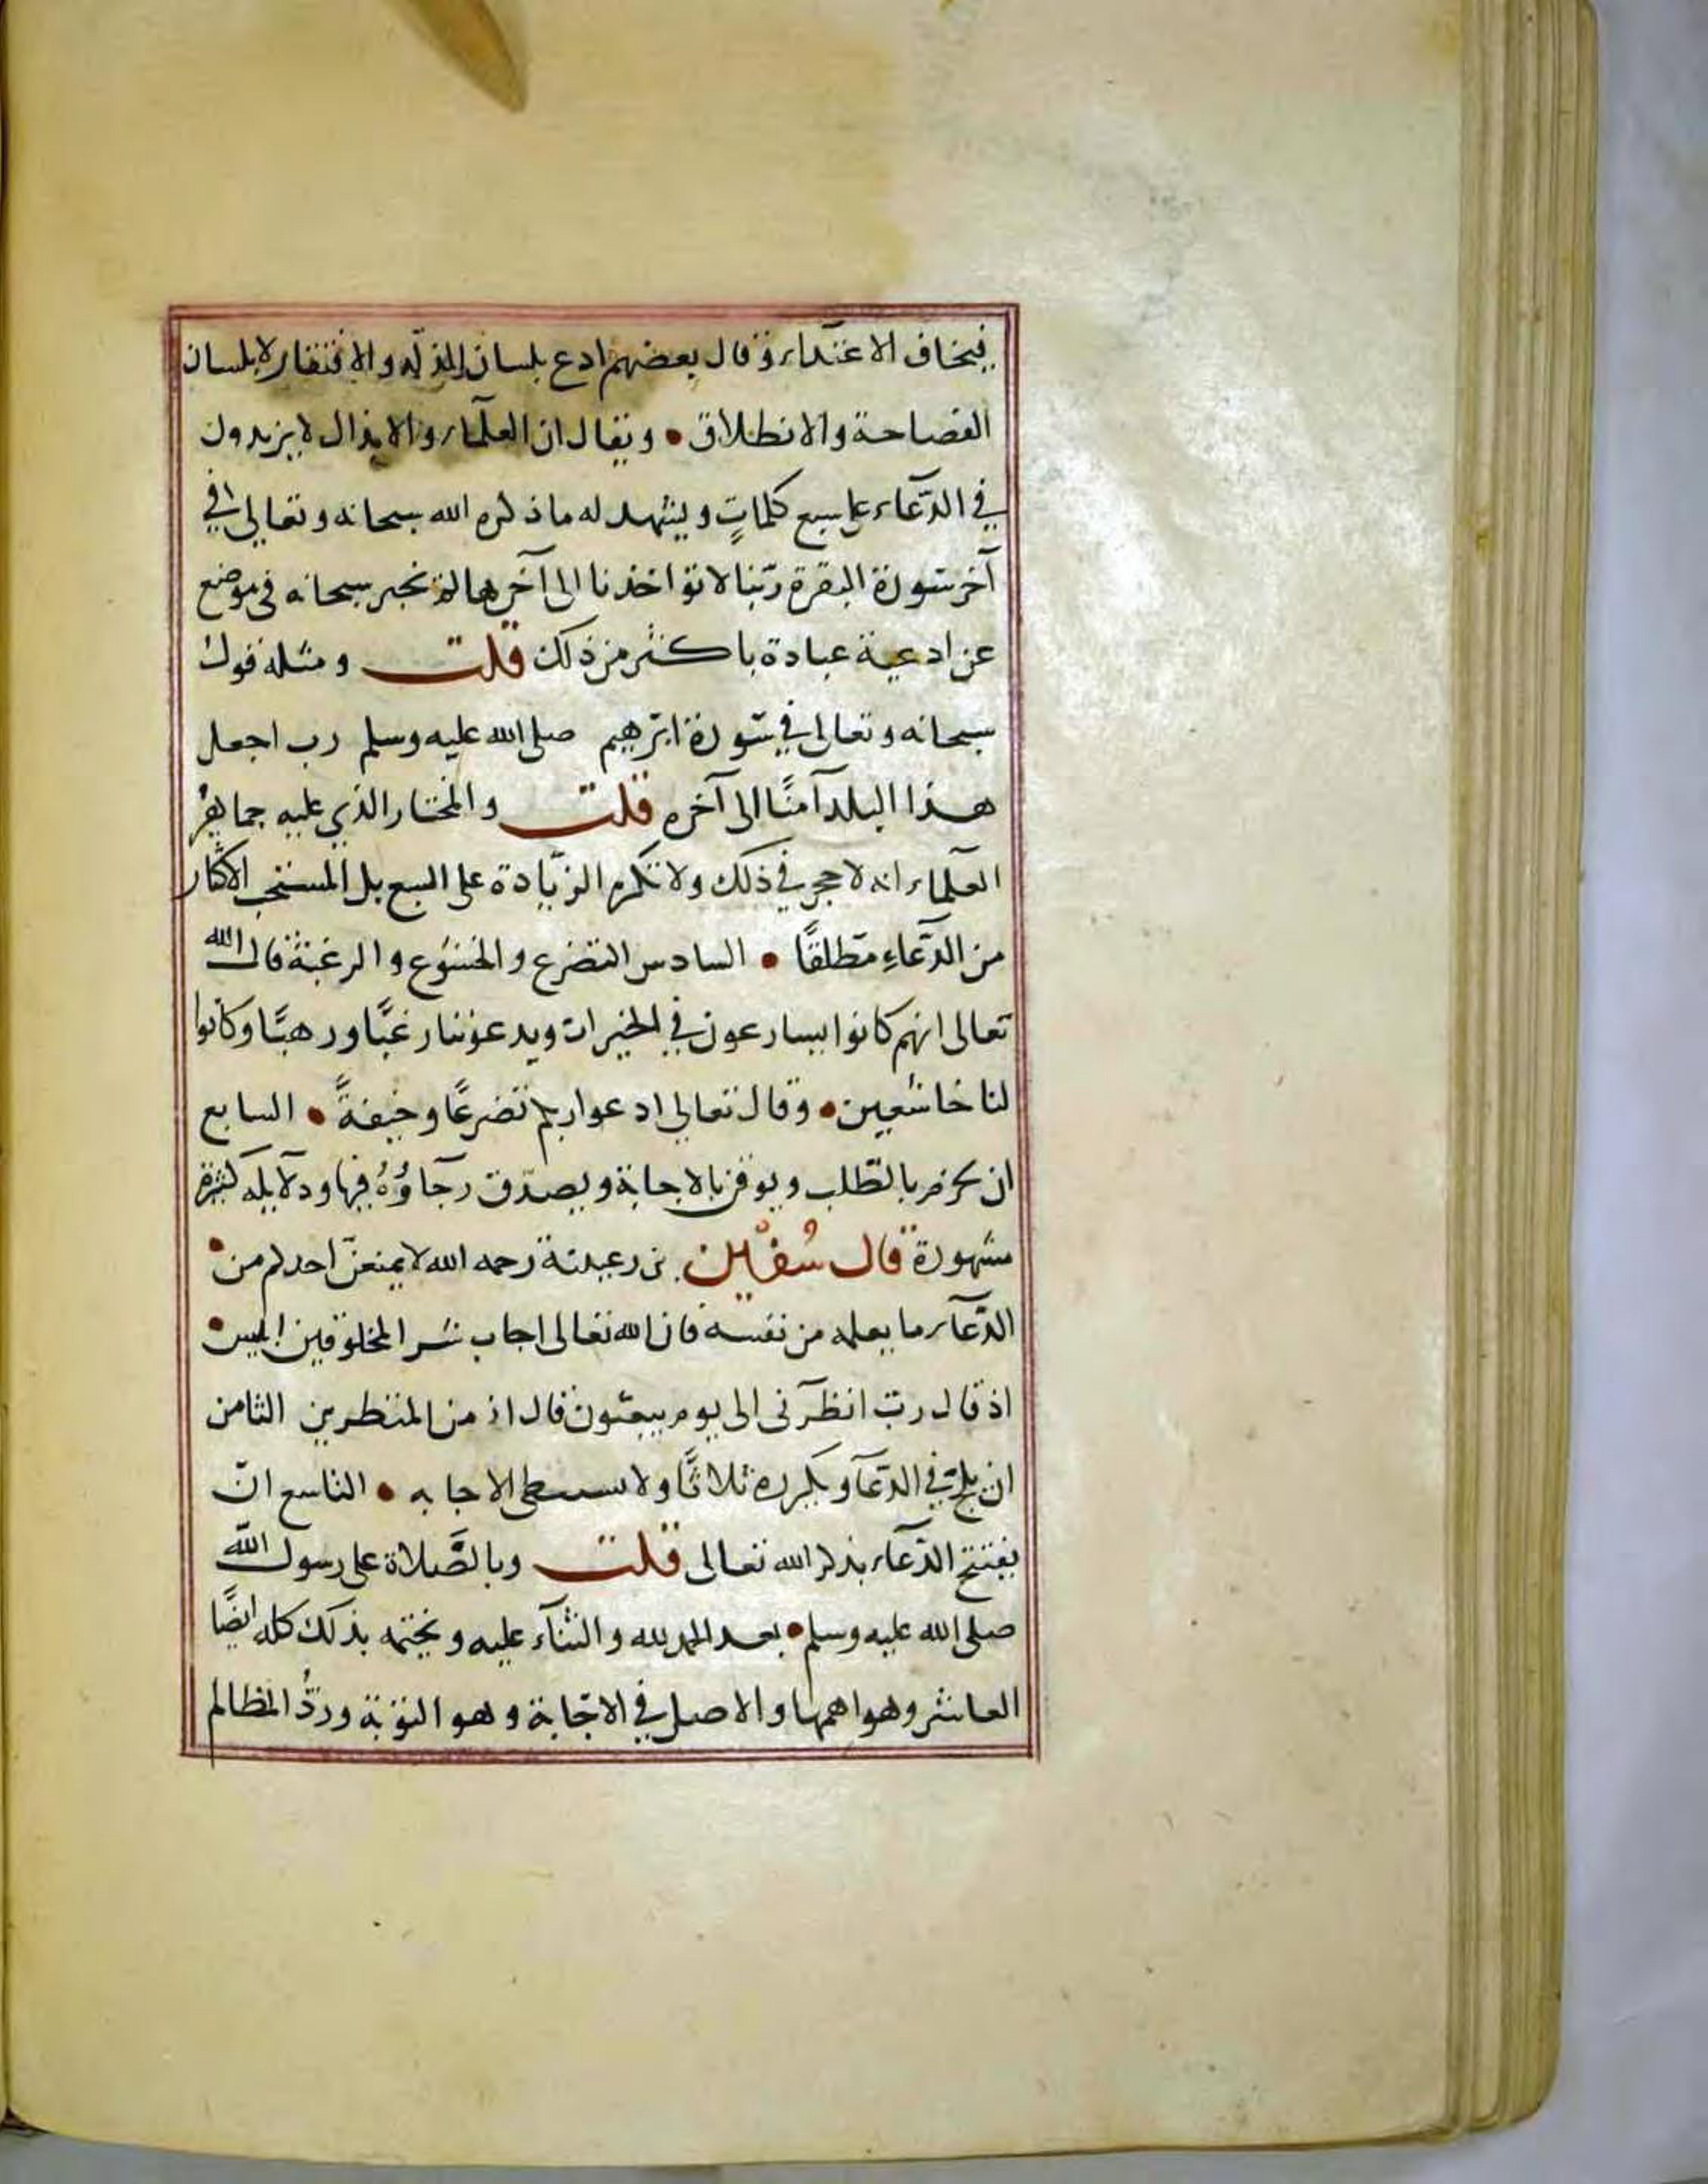 فيخاف الاعتداء وقال بعضهم ادع بلسان الذلة والافتقار لا بلسان
الفصاحة والانطلاق • ويقال ان العلماء والابدال لا يزيدون
في الدعاء على سبع كلماتٍ ويشهد له ما ذكره الله سبحانه وتعالى في
آخر سورة البقرة ربنا لا تؤاخذنا الى آخرها لم نخبر سبحانه في موضع
عن ادعية عبادة باكثر من ذلك قلت ومثله قول
سبحانه وتعالى في سورة ابرهيم صلى الله عليه وسلم رب اجعل
هذا البلد آمنًا الى آخره قلت والمختار الذي عليه جماهير
العلماء انه لا حجر في ذلك ولا تكره الزيادة على السبع بل المستحب الاكثار
من الدعاءِ مطلقًا • السادس التضرع والخشوع والرغبة قال الله
تعالى انهم كانوا يسارعون في الخيرات ويدعوننا رغبًا ورهبًا وكانوا
لنا خاشعين • وقال تعالى ادعوا ربكم تضرعًا وخيفةً • السابع
ان يجزم بالطلب ويوقن بالاجابة ويصدق رجاؤهُ فيها ودلايله كثيرة
مشهورة قال سُفْيٰن بن عيينة رحمه الله لا يمنعنّ احدكم من •
الدعاء ما يعلمه من نفسه فان الله تعالى اجاب شر المخلوقين ابليس •
اذ قال رب انظرني الى يوم يبعثون قال انك من المنظرين الثامن
ان يلح في الدعاء ويكرره ثلاثًا ولا يستبطئ الاجابه • التاسع ان
يفتتح الدعاء بذكر الله تعالى قلت وبالصَّلاة على رسول الله
صلى الله عليه وسلم • بعد الحمد لله والثناء عليه ويختمه بذلك كله ايضًا
العاشر وهو اهمها والاصل في الاجابة وهو التوبة وردُّ المظالم